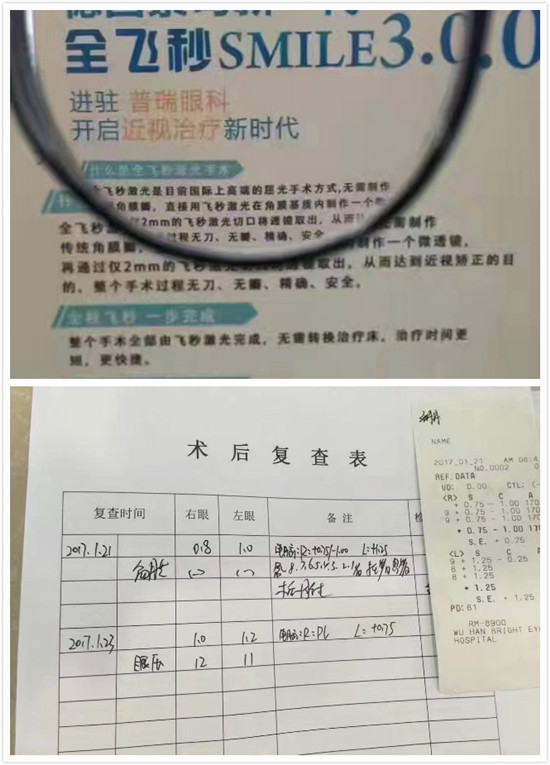 全飞秒SMILE3.0.0
进驻 普瑞眼科
开启近视治疗新时代
什么是全飞秒激光手术
全飞秒激光是目前国际上高端的屈光手术方式,无需制作
角膜瓣，直接用飞秒激光在角膜基质内制作一个微
2mm的飞秒激光切口将透镜取出，从而
需制作
传统角膜瓣，
过程无刀、无瓣、精确、安全
制作一个微透镜，
再通过仅2mm的飞秒激光
透镜取出，从而达到近视矫正的目
的。整个手术过程无刀、无瓣、精确、安全。
全程飞秒 一步完成
整个手术全部由飞秒激光完成，无需转换治疗床，治疗时间更
短，更快捷。
术后复查表
复查时间 右眼 左眼 备注
2017.1.21 0.8 1.0 电脑:R:+0.75/-1.00 L:+1.25
(-) (-)
2017.1.23 1.0 1.2 电脑:R:PL L:+0.75
眼压 12 11
NAME
2017_01_21 AM 08:4
NO.0002
REF.DATA
VD: 0.00 CYL: (-
<R> S C A
+ 0.75 - 1.00 170
9 + 0.75 - 1.00 170
9 + 0.75 - 1.00 170
+ 0.75 - 1.00 17
S.E. + 0.25
<L> S C
9 + 1.25 - 0.25
8 + 1.25
8 + 1.25
+ 1.25
S.E. + 1.25
PD: 61
RM-8900
WU HAN BRIGHT EY
HOSPITAL